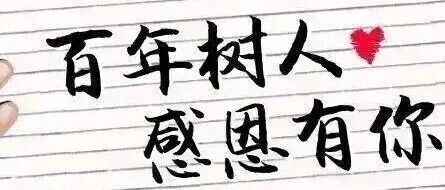 百年树人
感恩有你